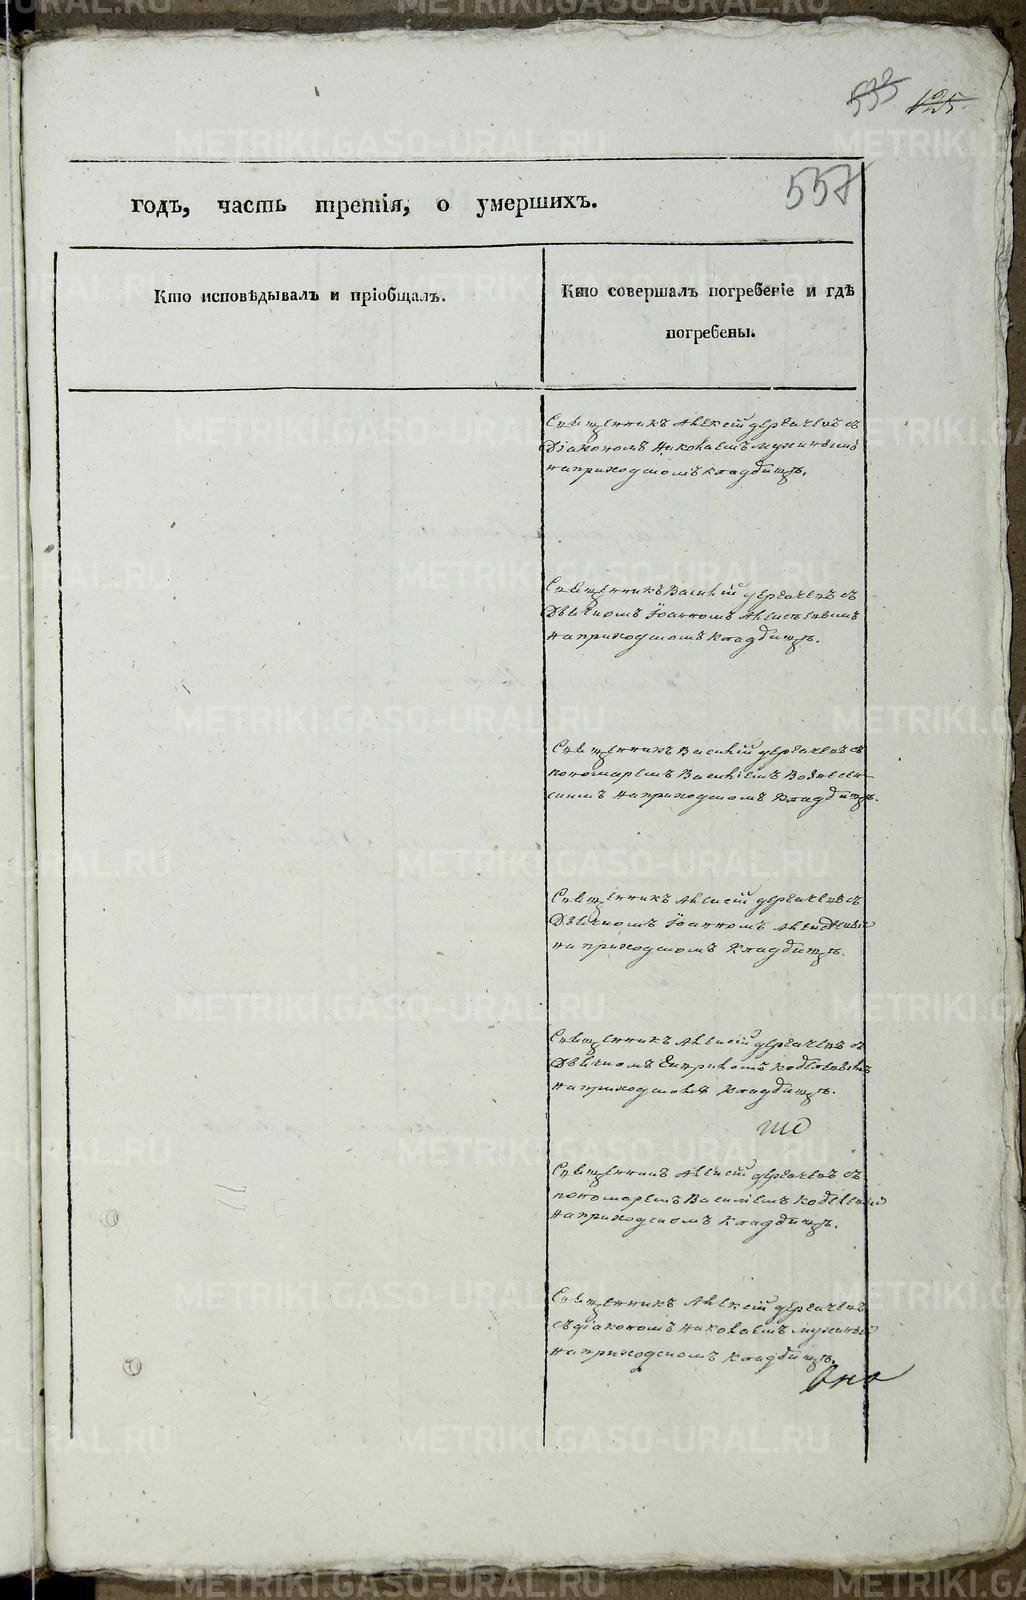 535 125
557
годъ, часть третія, о умершихъ.
Кто исповѣдывалъ и пріобщалъ.
Кто совершалъ погребеніе и гдѣ
погребены.
Священникъ Алексій дергачевъ съ
Діакономъ Николаемъ
на приходскомъ кладбищѣ.
Священникъ Василій дергачевъ съ
Дьячкомъ Іоанномъ
на приходскомъ кладбищѣ.
Священникъ Василій дергачевъ съ
пономаремъ Василіемъ Вознесен-
скимъ на приходскомъ кладбищѣ.
Священникъ Алексій дергачевъ съ
Дьячкомъ Іоанномъ
на приходскомъ кладбищѣ.
Священникъ Алексій дергачевъ съ
Дьячкомъ
на приходскомъ кладбищѣ.
Священникъ Алексій дергачевъ съ
пономаремъ Василіемъ
на приходскомъ кладбищѣ.
Священникъ Алексій дергачевъ
съ діакономъ Николаемъ
на приходскомъ кладбищѣ.
METRIKI.GASO-URAL.RU